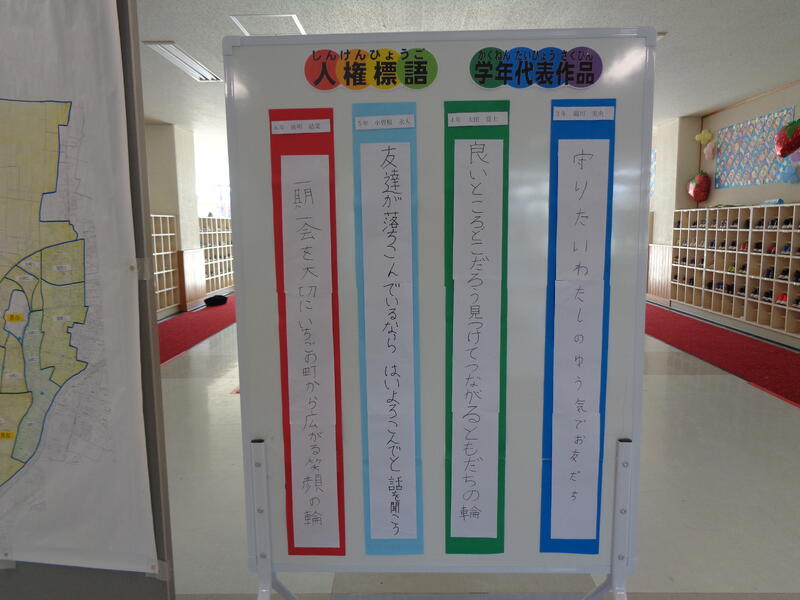 じんけんひょうご
人権標語
がくねん だいひょう さくひん
学年代表作品
3年
守りたいわたしのゆう気でお友だち
4年 太田
良いところどこだろう見つけてつながるともだちの輪
5年 小曽根 永人
友達が落ちこんでいるなら はいよろこんでと 話を聞こう
6年 結菜
一期一会を大切にいちごの町から広がる笑顔の輪